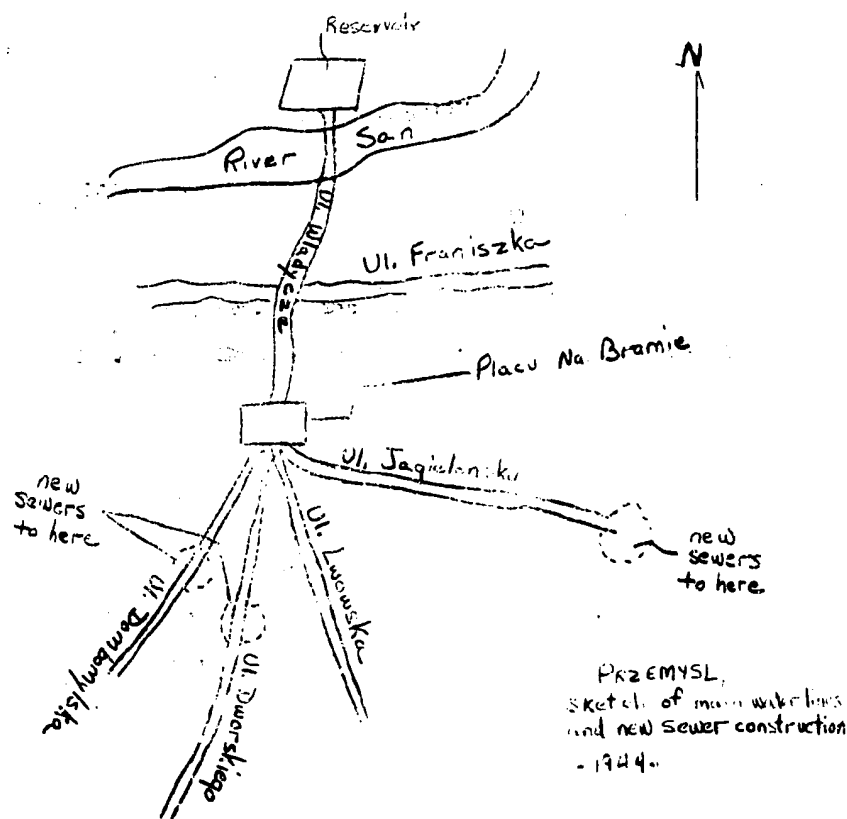 Reservoir
N
River San
Ul. Wladycze
Ul. Franiszka
Placu Na Bramie
Ul. Jagielonska
new
sewers
to here
Ul. Lwowska
new
sewers
to here
Ul. Dombomylska
Ul. Dworskiego
PRZEMYSL,
sketch of main water lines
and new sewer construction